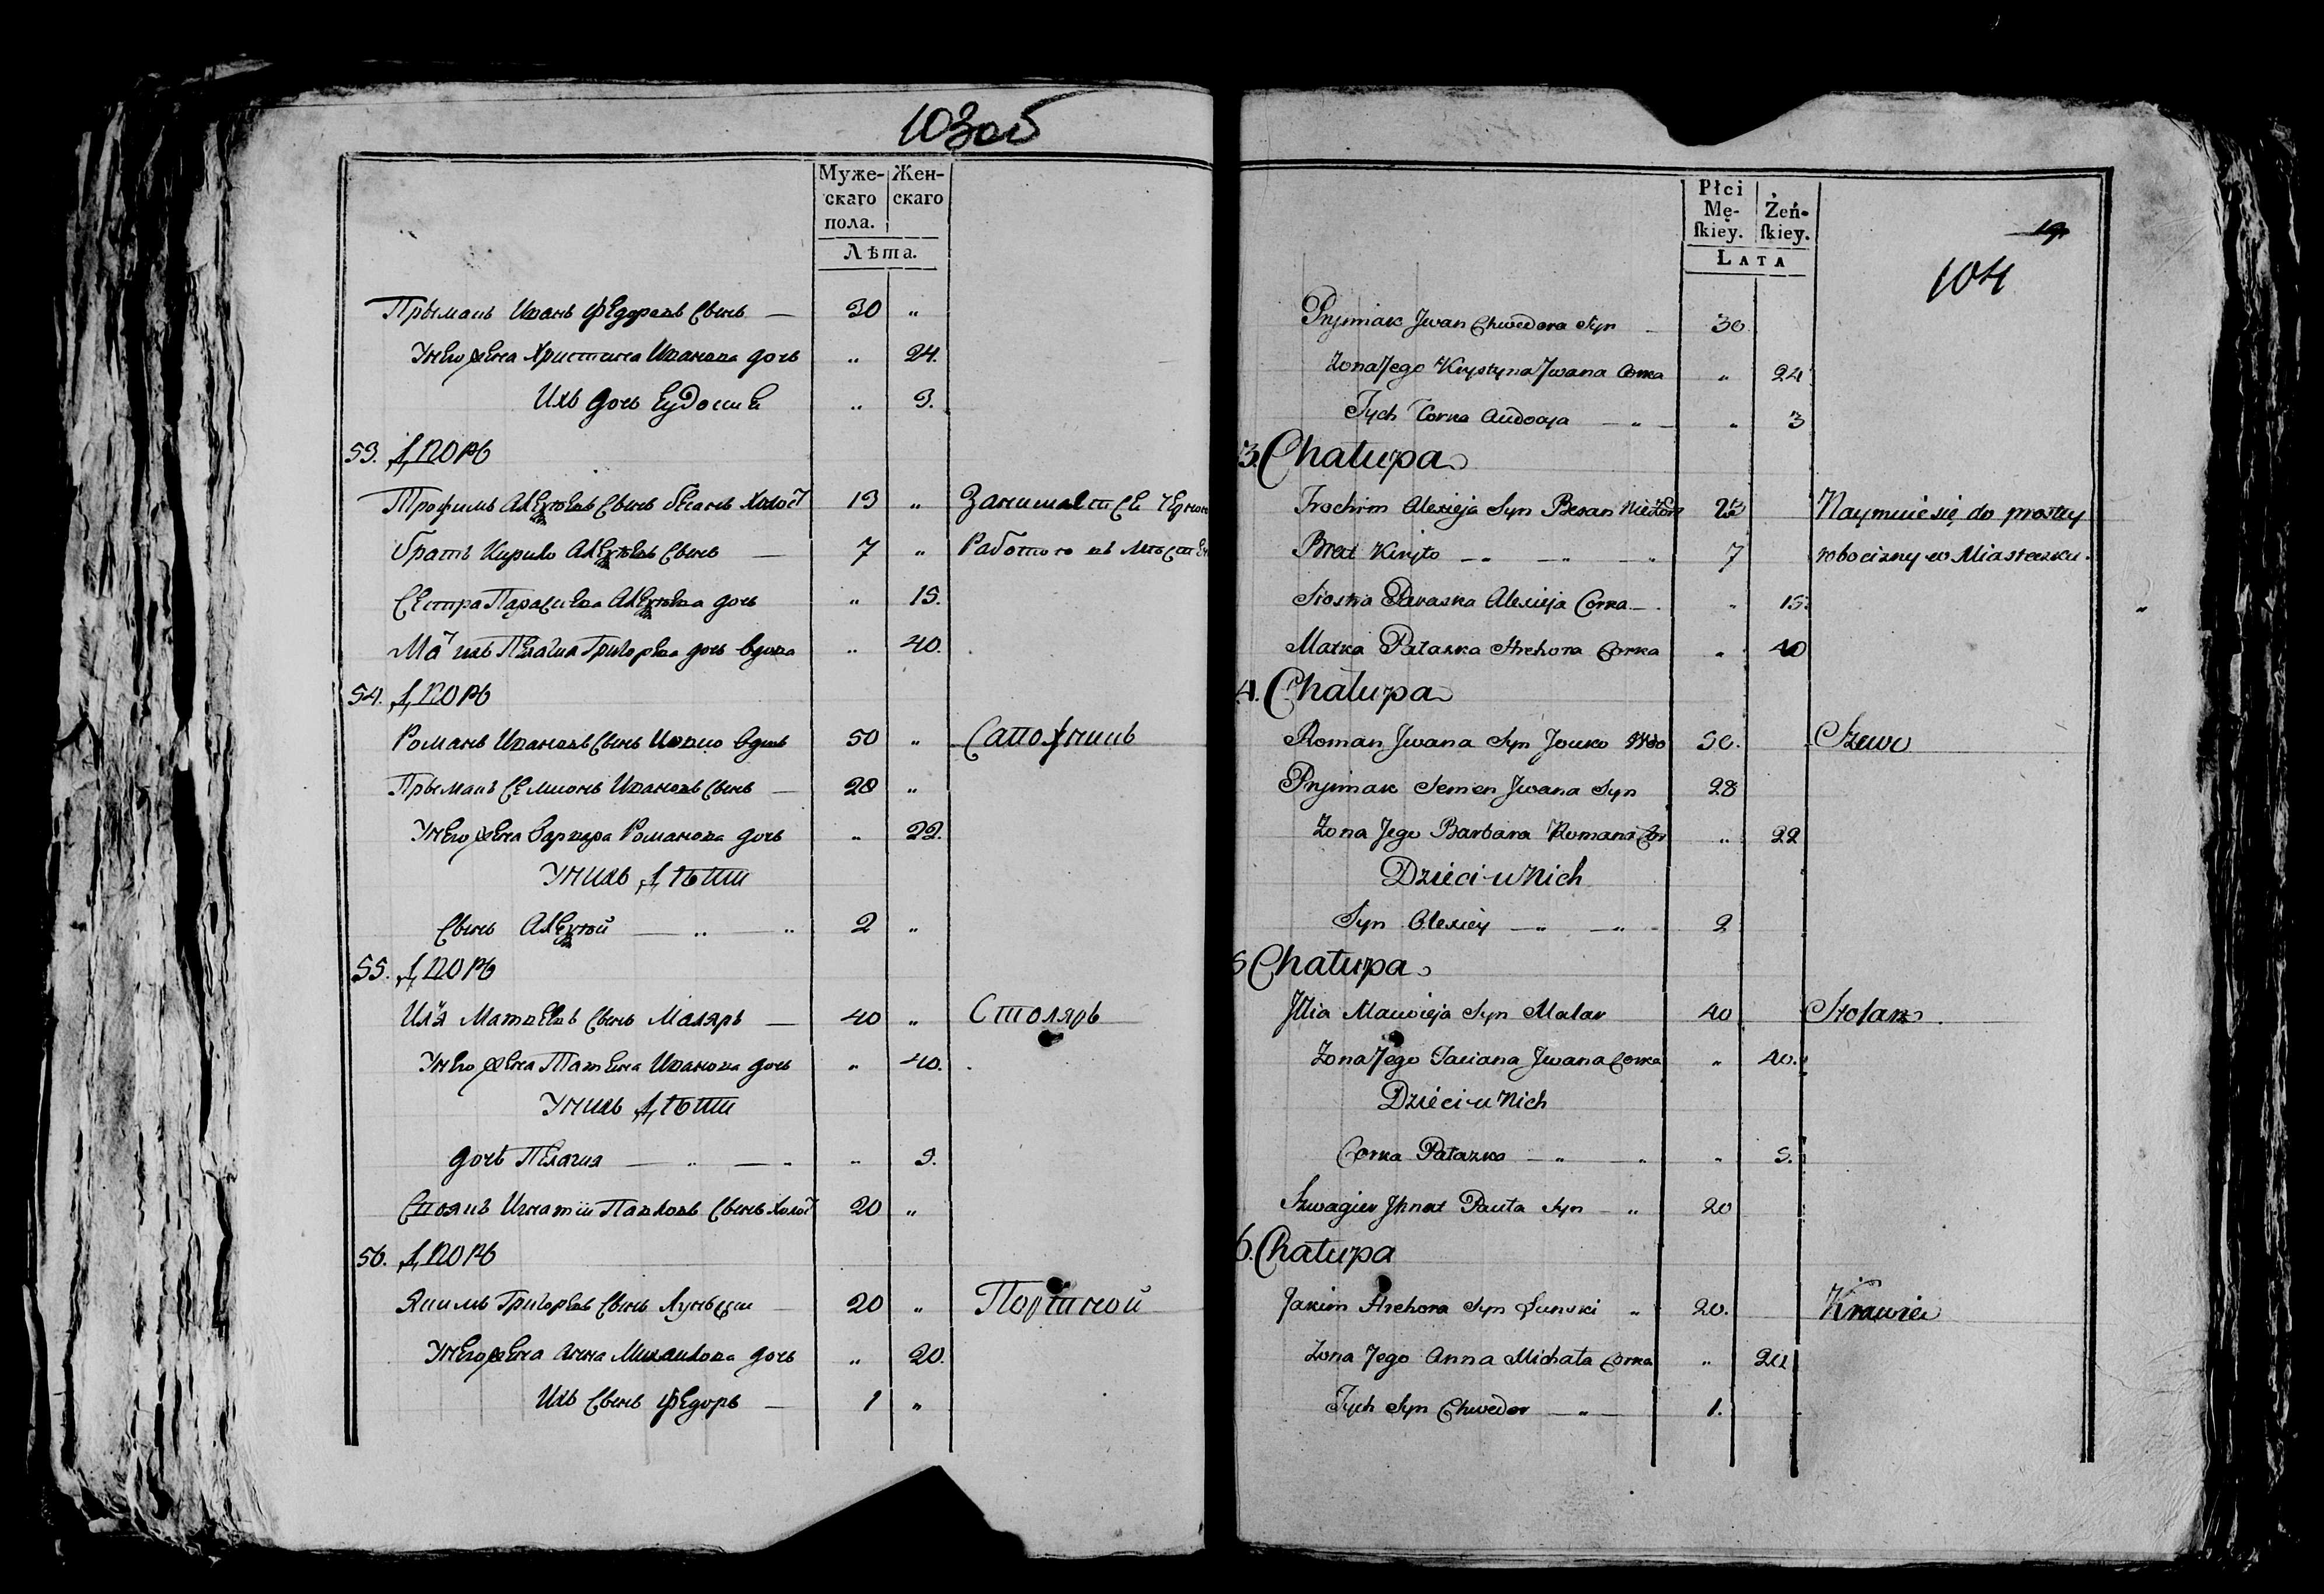 103об
Муже- Жен-
скаго скаго
пола.
Лѣта.
Прымакъ Иванъ Федоровъ Сынъ — 30 „
Унего жена Христина Иванова дочь „ 24.
Ихъ дочь Еудосия „ 3.
53. Дворъ
Трофимъ Алексѣевъ Сынъ холост 19 „ Занимается черною
Братъ Кирило Алексѣевъ Сынъ — 7 „ Работою въ
Сестра Парасиева Алексѣева дочь „ 15.
Мать ихъ Пелагия Григорева дочь вдова „ 40.
54. Дворъ
Романъ Ивановъ Сынъ Иовко вдовъ 50 „ Сапожникъ
Прымакъ Семионъ Ивановъ Сынъ — 28 „
Унего жена Варвара Романова дочь „ 22.
Унихъ Дѣти
Сынъ Алексѣй — „ — „ 2 „
55. Дворъ
Илья Матвеевъ Сынъ Маляръ — 40 „ Столяръ
Унего жена Татяна Иванова дочь „ 40.
Унихъ Дѣти
дочь Пелагия — „ — „ „ 5.
Игнатий Павловъ Сынъ холост 20 „
56. Дворъ
Якимъ Григоревъ Сынъ Луньски — 20 „ Портной
Унего жена Анна Михаилова дочь „ 20.
Ихъ Сынъ Федоръ — 1 „
Płci
Mę- Żeń-
skiey. skiey.
LATA
19
104
Pryjmak Jwan Chwedora Syn — 30.
Zona Jego Krystyna Jwana Corka „ 24
Tych Corka Audocya — „ — „ 3
3. Chałupa
Trochim Alexieja Syn Nieżon Naymuie się do prostey
Brat Kiryło — „ — „ — „ 7 robocizny w Miasteczku.
Siostra Paraska Alexieja Corka — „ 15.
Matka Pałaska Hrehora Corka „ 40
4. Chałupa
Roman Jwana Syn Jowko Wdo 50. Szewc
Pryjmak Semen Jwana Syn 28
Zona Jego Barbara Romana Cor „ 22
Dzieci u Nich
Syn Alexiey — „ — „ 2
5 Chałupa
Jllia Macwieja Syn Malar 40 Stolarz
Zona Jego Taciana Jwana Corka „ 40.
Dzieci u Nich
Corka Pałazka — „ „ „ 5.
Szwagier Jhnat Pauła Syn — „ 20
6. Chałupa
Jakim Hrehora Syn Łunski „ 20. Krawiec
Zona Jego Anna Michała Corka „ 20
Tych Syn Chwedor — „ — 1.